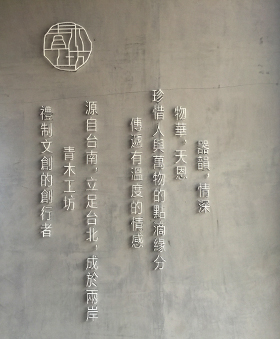 青木工坊
器韻，情深
物華，天恩
珍惜人與萬物的點滴緣分
傳遞有溫度的情感
源自台南，立足台北，成於兩岸
青木工坊
禮制文創的創行者